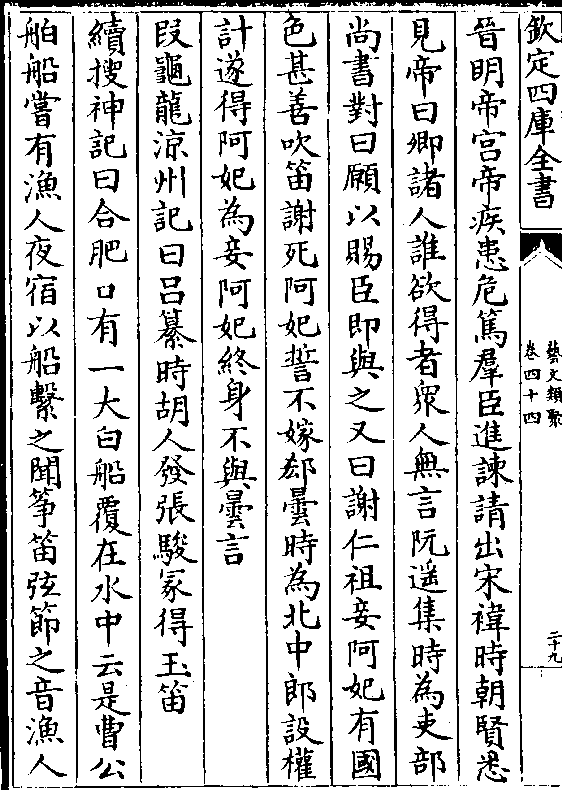 欽定四庫全書
藝文類聚
卷四十四
二十九
晉明帝宫帝疾患危篤羣臣進諫請出宋禕時朝賢悉
見帝曰卿諸人誰欲得者衆人無言阮遥集時為吏部
尚書對曰願以賜臣即與之又曰謝仁祖妾阿妃有國
色甚善吹笛謝死阿妃誓不嫁郄曇時為北中郎設權
計遂得阿妃為妾阿妃終身不與曇言
段龜龍涼州記曰吕纂時胡人發張駿冢得玉笛
續搜神記曰合肥口有一大白船覆在水中云是曹公
舶船嘗有漁人夜宿以船繫之聞筝笛弦節之音漁人